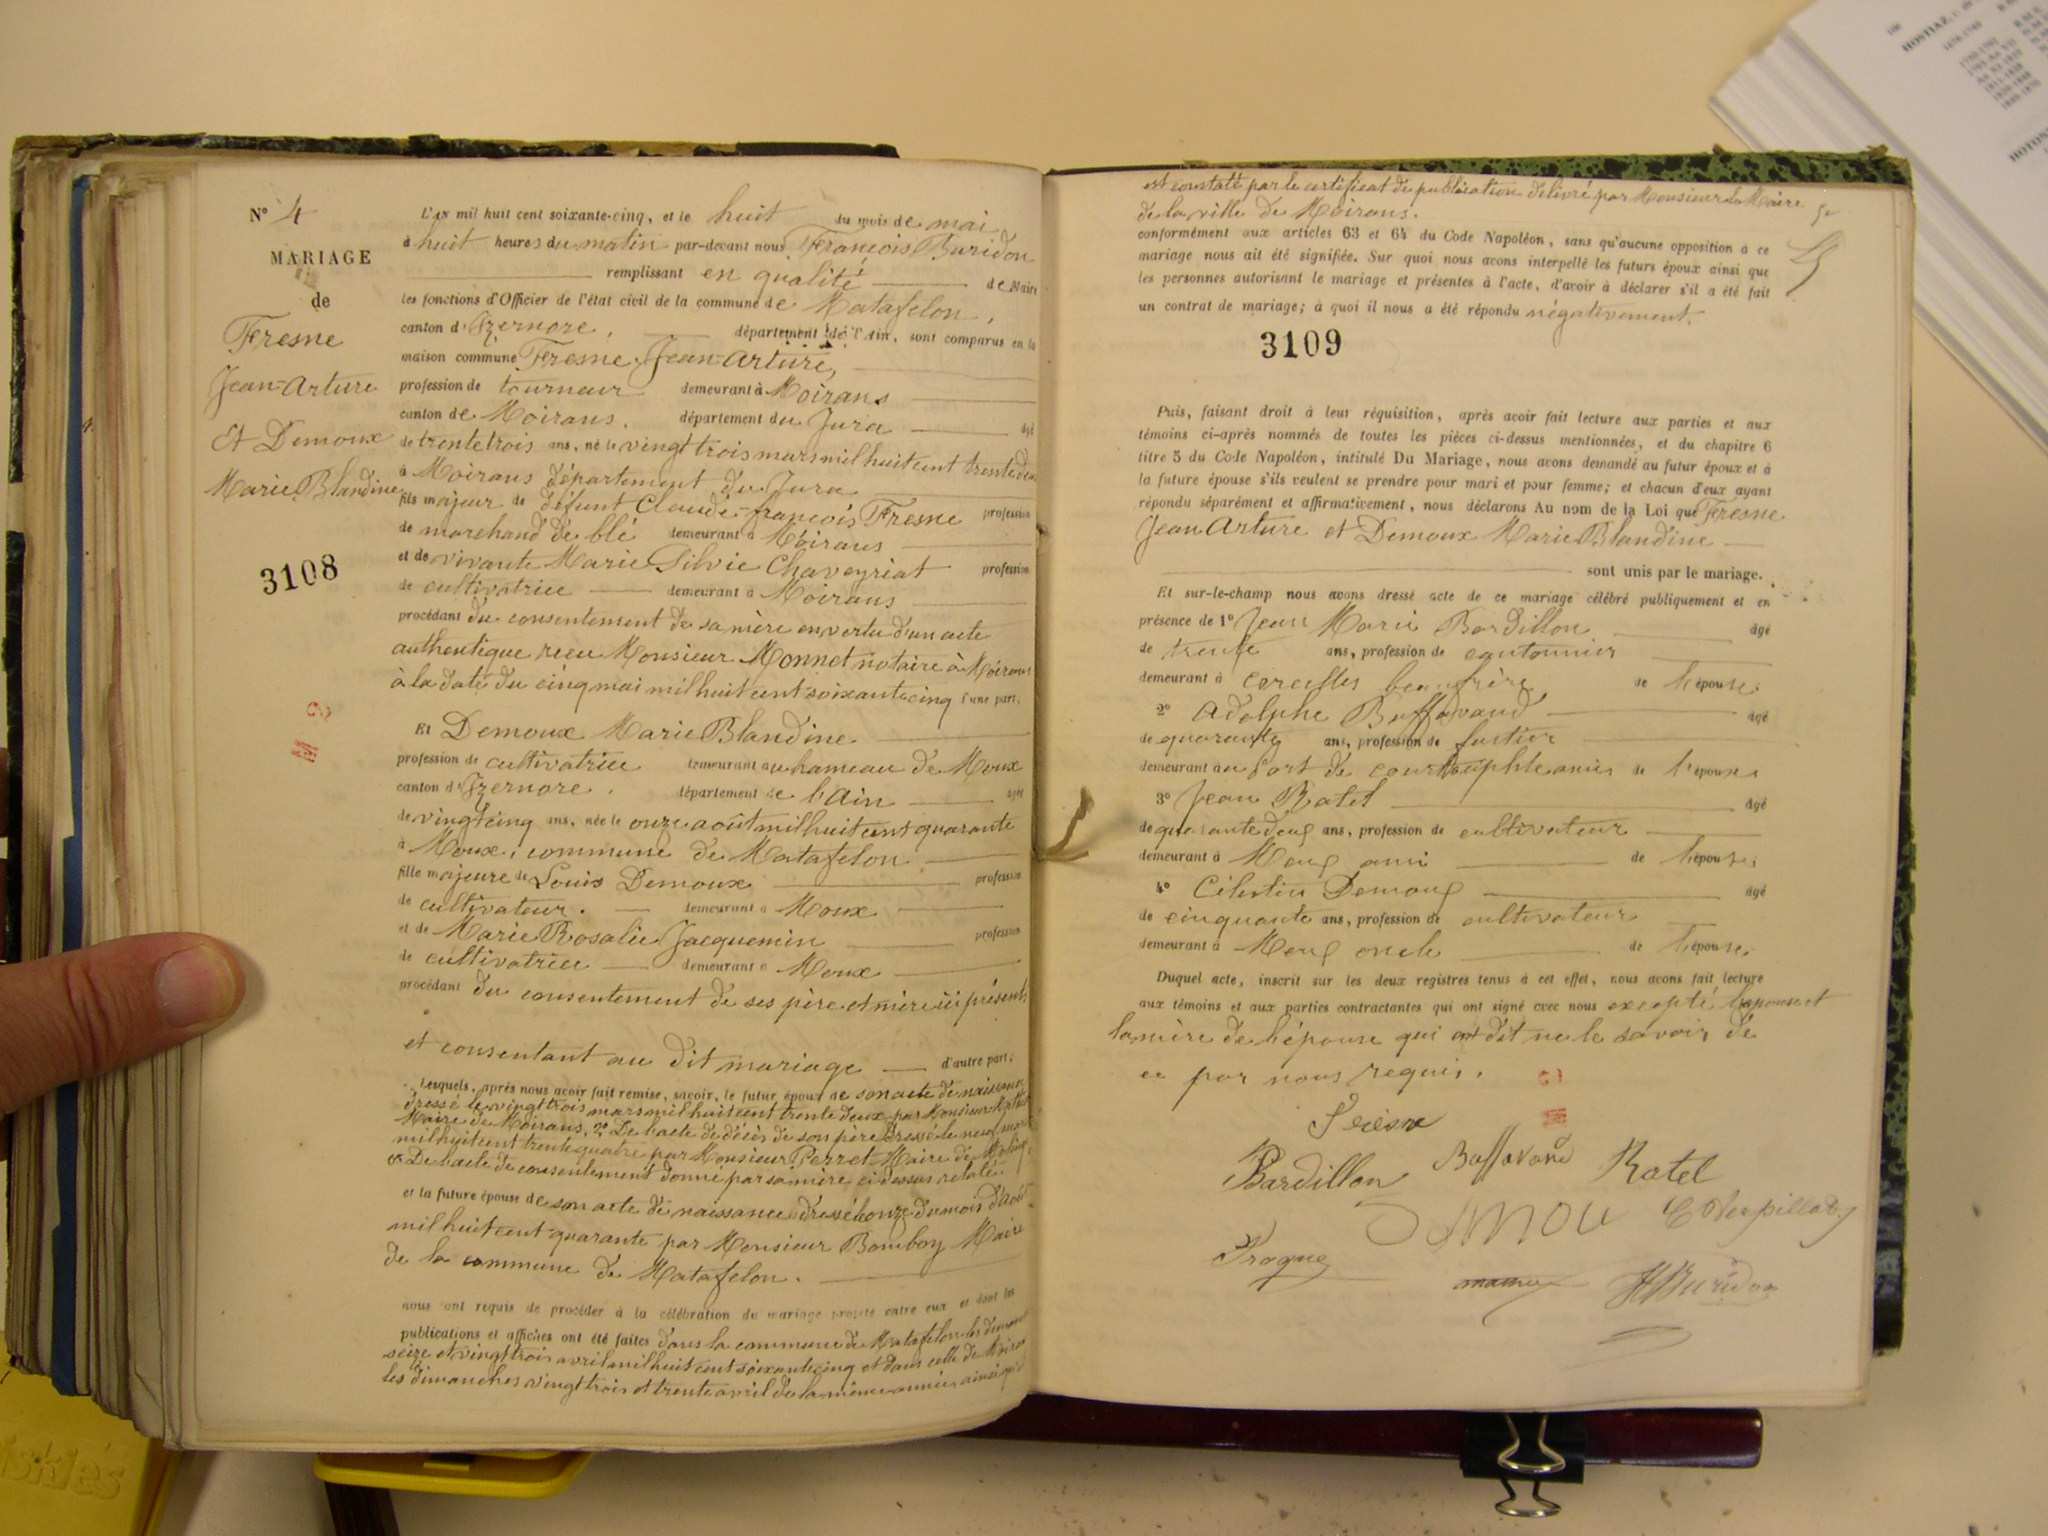 N° 4
MARIAGE
de
Fresne
Jean-Arture
Et Demoux
Marie Blandine
3108
L'an mil huit cent soixante-cinq, et le huit du mois de mai
à huit heures du matin par-devant nous François Buridon
remplissant en qualité de Maire
les fonctions d'Officier de l'état civil de la commune de Matafelon,
canton d'Izernore, département de l'Ain, sont comparus en la
maison commune Fresne Jean-Arture,
profession de tourneur demeurant à Moirans
canton de Moirans. département du Jura âgé
de trente trois ans, né le vingt trois mars mil huit cent trente deux
à Moirans département du Jura
fils majeur de défunt Claude-françois Fresne profession
de marchand de blé demeurant à Moirans
et de vivante Marie Silvie Chaveyriat profession
de cultivatrice demeurant à Moirans
procédant du consentement de sa mère en vertu d'un acte
authentique recu Monsieur Monnet notaire à Moirans
à la date du cinq mai mil huit cent soixante cinq d'une part.
Et Demoux Marie Blandine
profession de cultivatrice demeurant au hameau de Moux
canton d'Izernore. département de l'Ain âgée
de vingt cinq ans, née le onze août mil huit cent quarante
à Moux, commune de Matafelon
fille majeure de Louis Demoux profession
de cultivateur. demeurant à Moux
et de Marie Rosalie Jacquemin profession
de cultivatrice demeurant à Moux
procédant du consentement de ses père et mère ici présents
et consentant au dit mariage d'autre part.
Lesquels, après nous avoir fait remise, savoir, le futur époux de son acte de naissance
dressé le vingt trois mars mil huit cent trente deux par Monsieur
Maire de Moirans, 2° De l'acte de décès de son père dressé le neuf mars
mil huit cent trente quatre par Monsieur Perret Maire de
& De l'acte de consentement donné par sa mère ci dessus relaté.
et la future épouse de son acte de naissance dressé le onze du mois d'août
mil huit cent quarante par Monsieur Bomboy Maire
de la commune de Matafelon.
nous ont requis de procéder à la célébration du mariage projeté entre eux et dont les
publications et affiches ont été faites dans la commune de Matafelon les dimanches
seize et vingt trois avril mil huit cent soixante cinq et dans celle de Moirans
les dimanches vingt trois et trente avril de la même année, ainsi qu'il
est constaté par le certificat de publication délivré par Monsieur le Maire
de la ville de Moirans.
conformément aux articles 63 et 64 du Code Napoléon, sans qu'aucune opposition à ce
mariage nous ait été signifiée. Sur quoi nous avons interpellé les futurs époux ainsi que
les personnes autorisant le mariage et présentes à l'acte, d'avoir à déclarer s'il a été fait
un contrat de mariage; à quoi il nous a été répondu négativement.
3109
Puis, faisant droit à leur réquisition, après avoir fait lecture aux parties et aux
témoins ci-après nommés de toutes les pièces ci-dessus mentionnées, et du chapitre 6
titre 5 du Code Napoléon, intitulé Du Mariage, nous avons demandé au futur époux et à
la future épouse s'ils veulent se prendre pour mari et pour femme; et chacun d'eux ayant
répondu séparément et affirmativement, nous déclarons Au nom de la Loi que Fresne
Jean Arture et Demoux Marie Blandine
sont unis par le mariage.
Et sur-le-champ nous avons dressé acte de ce mariage célébré publiquement et en
présence de 1° Jean Marie Bardillon âgé
de trente ans, profession de cantonnier
demeurant à corcelles beau frère de l'épouse.
2° Adolphe Buffavand âgé
de quarante ans, profession de
demeurant au Port de amis de l'épouse
3° Jean Ratel âgé
de quarante deux ans, profession de cultivateur
demeurant à Moux ami de l'épouse.
4° Célestin Demoux âgé
de cinquante ans, profession de cultivateur
demeurant à Moux oncle de l'épouse.
Duquel acte, inscrit sur les deux registres tenus à cet effet, nous avons fait lecture
aux témoins et aux parties contractantes qui ont signé avec nous excepté l'épouse et
la mère de l'épouse qui ont dit ne le savoir, de
ce par nous requis.
Bardillon Buffavand Ratel
F Buridon